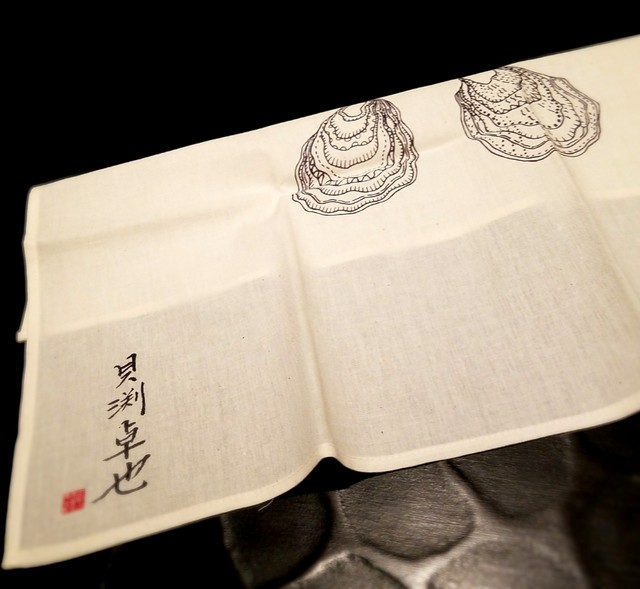 貝渕卓也